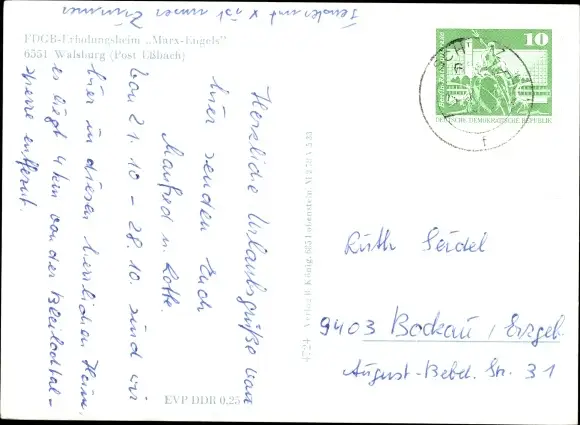 Fensterunt x ist unser Zimmer
FDGB-Erholungsheim „Marx-Engels"
6551 Walsburg (Post Eßbach)
Herzliche Urlaubsgrüße von
hier senden Euch
Manfred u. Lotte.
Von 21.10 - 28.10. sind wir
hier in diesem herrlichen Heim.
es liegt 4 km von der Bleilochtal-
sperre entfernt.
EVP DDR 0,25
10
DEUTSCHE DEMOKRATISCHE REPUBLIK
Ruth Seidel
9403 Bockau, Erzgeb
August-Bebel Str. 31